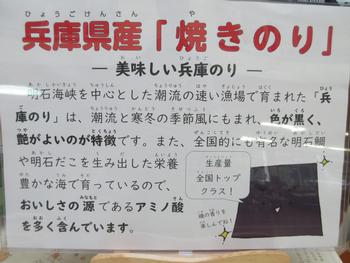 兵庫県産「焼きのり」
― 美味しい兵庫のり ―
明石海峡を中心とした潮流の速い漁場で育まれた「兵
庫のり」は、潮流と寒冬の季節風にもまれ、色が黒く、
艶がよいのが特徴です。また、全国的にも有名な明石鯛
や明石だこを生み出した栄養
豊かな海で育っているので、
おいしさの源であるアミノ酸
を多く含んでいます。
生産量
全国トップ
クラス!